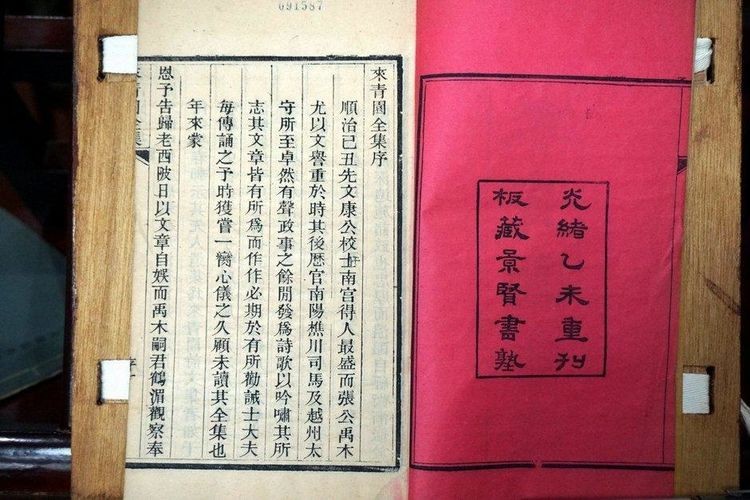 光緒乙未重刊
板藏景賢書塾
來青園全集序
順治己丑先文康公校士南宮得人最盛而張公禹木
尤以文譽重於時其後歷官南陽樵川司馬及越州太
守所至卓然有聲政事之餘閒發爲詩歌以吟嘯其所
志其文章皆有所爲而作作必期於有所勸誡士大夫
每傳誦之予時獲嘗一臠心儀之久顧未讀其全集也
年來蒙
恩予告歸老西陂日以文章自娛而禹木嗣君鶴湄觀察奉
來青園全集